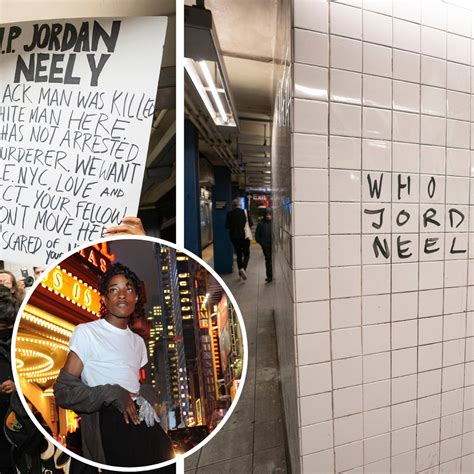 .P JORDAN
NEELY
ACK MAN WAS KILLED
HITE MAN HERE
HAS NOT ARRESTED
URDERER. WE WANT
E. NYC, LOVE AND
ECT YOUR FELLOW
ON'T MOVE HERE
SCARED OF
WHO
JORD
NEEL